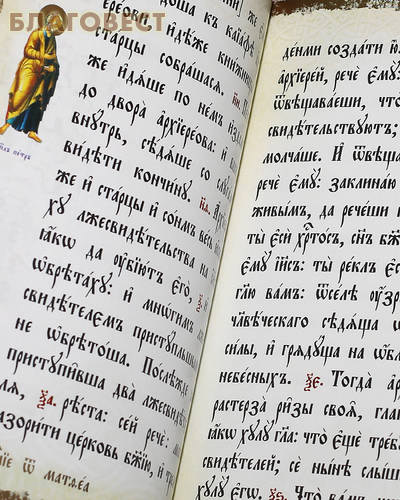 БЛАГОВЕСТ
доша къ каїафѣ
ереови, идѣже книжницы
старцы собрашася.
же идѧше по немъ
до двора архїереова:
внутрь, сѣдѧше со
видѣти кончину.
же и старцы и сонмъ весь
ху лжесвидѣтельства на
ꙗкѡ да оубїютъ его,
ѡбрѣтаху: и многимъ
свидѣтелемъ приступльшымъ
не ѡбрѣтоша. Послѣжде
приступивша два лжесвид
лѧ, ѯа. рѣста: сей рече:
азорити церковь бж҃їю, и
їе ѿ матѳеа
денми создати ю
архїерей, рече емꙋ:
ѿвѣщаваеши, что
свидѣтельствуютъ;
молчаше. И ѿвѣща
рече емꙋ: заклинаю
живымъ, да речеши
ты еси хрⷭ҇тосъ, сн҃ъ бж҃
емꙋ іи҃съ: ты реклъ еси
гл҃ю вамъ: ѿселѣ оузр
чл҃вѣческаго сѣдѧща
силы, и грѧдуща на ѡбл
небесныхъ. ѯе. Тогда
растерза ризы своѧ, гла
хулу гл҃а: что еще треб
свидѣтелей; се нынѣ слыш
хулу егѡ. ѯѕ. Что вамъ